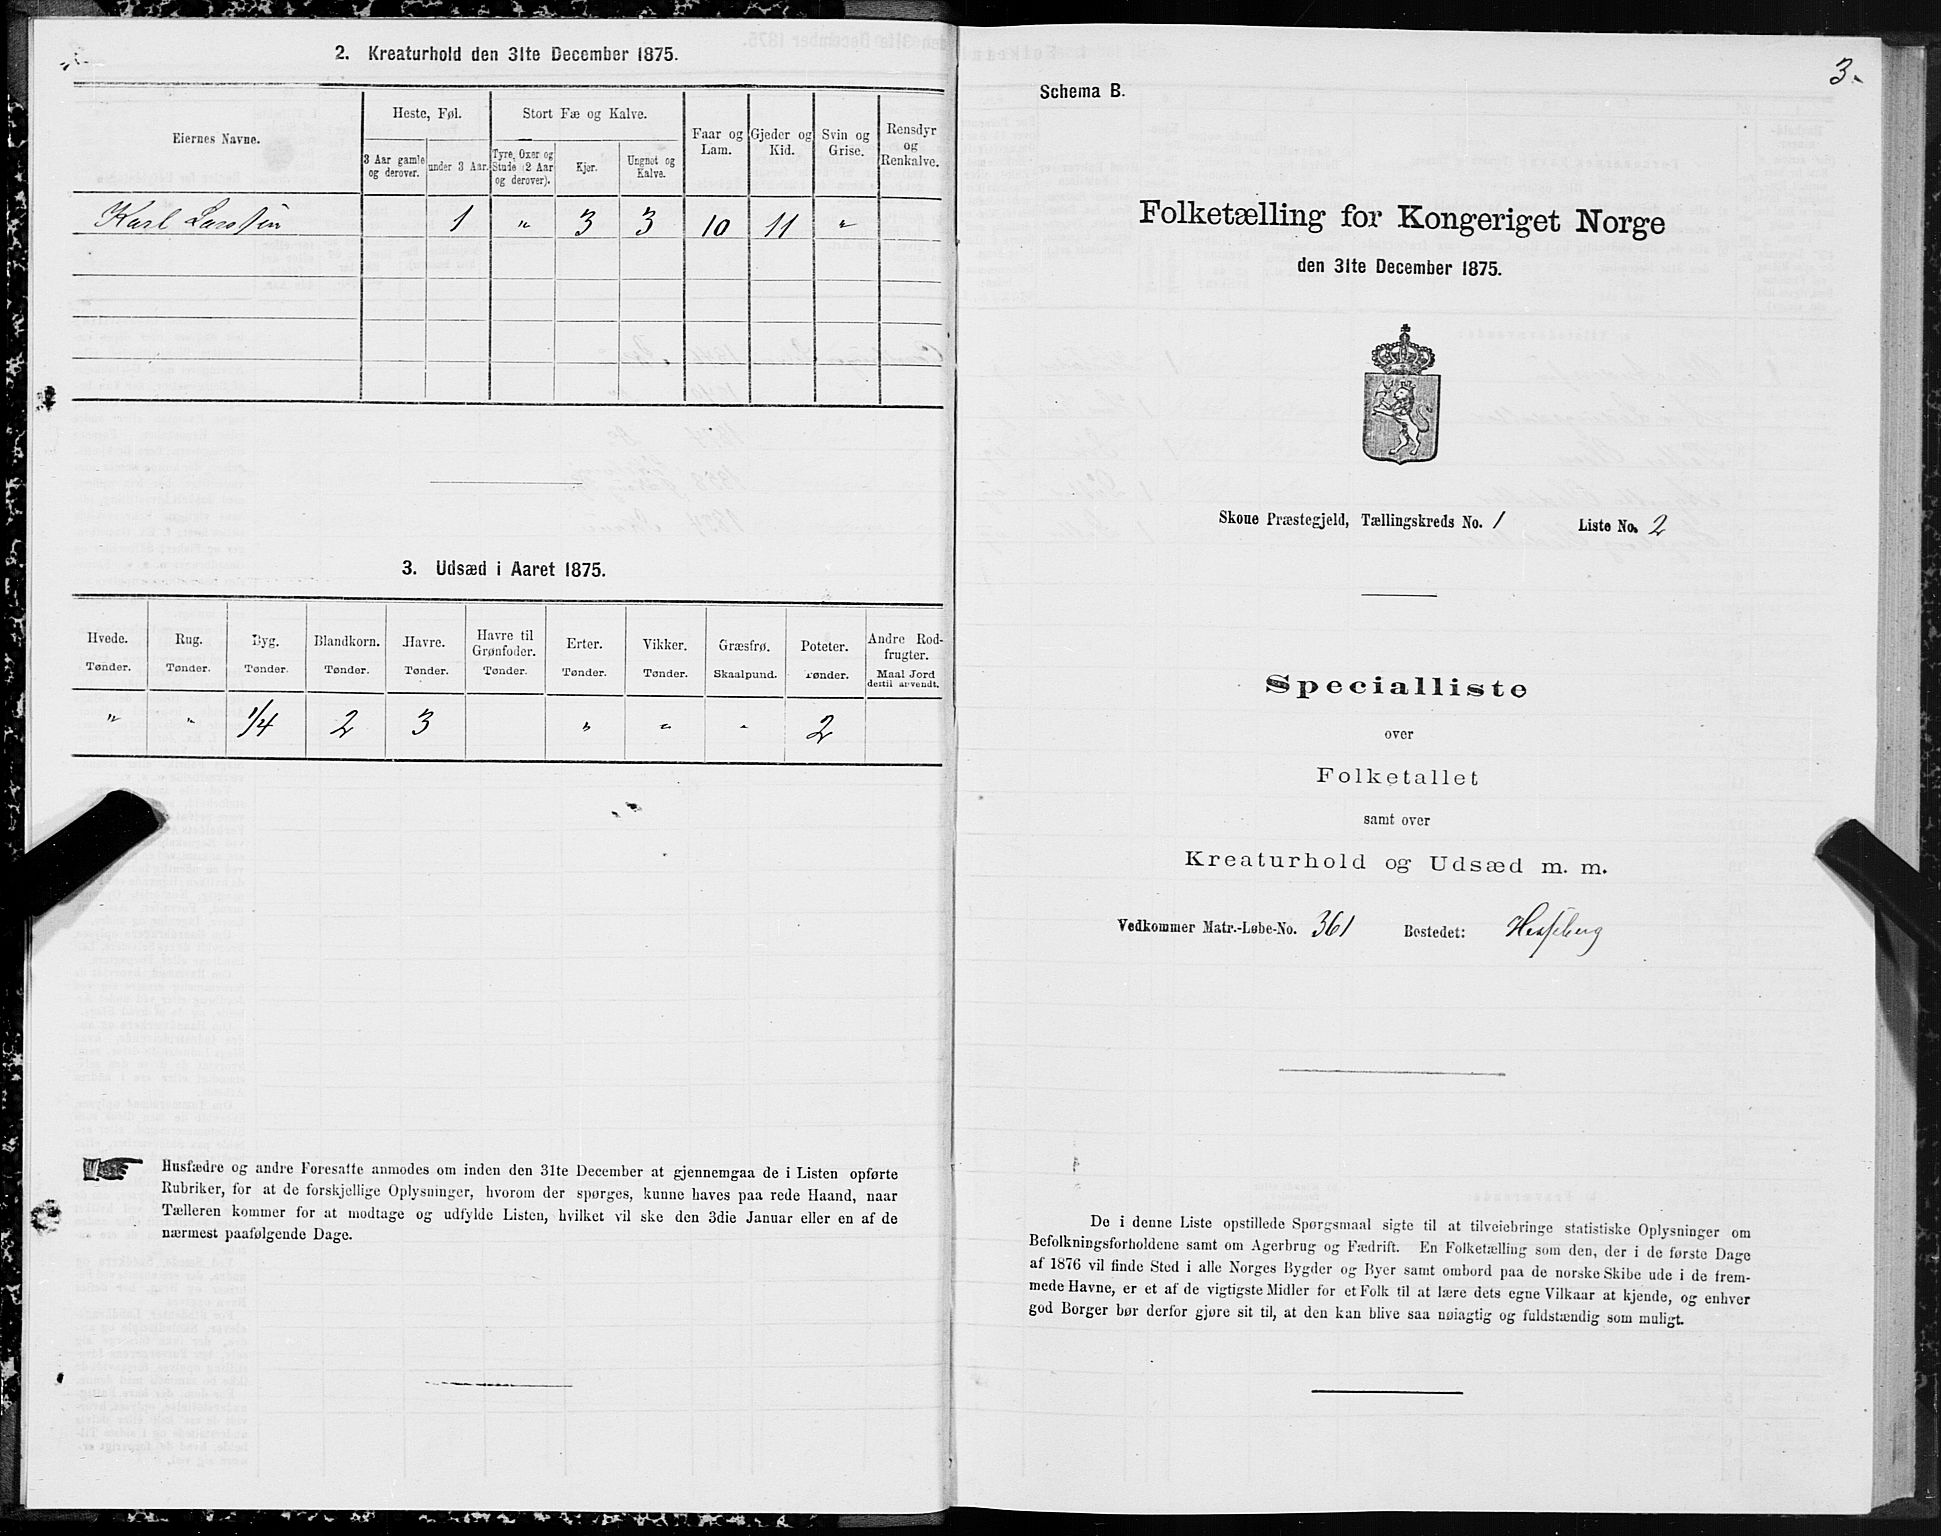 2. Kreaturhold den 31te December 1875.
Eiernes Navne.
Heste, Føl.
Stort Fæ og Kalve.
Faar og Lam.
Gjeder og Kid.
Svin og Grise.
Rensdyr og Renkalve.
3 Aar gamle og derover.
under 3 Aar.
Tyre, Oxer og Stude (2 Aar og derover).
Kjør.
Ungnøt og Kalve.
Karl Larssen 1 " 3 3 10 11 "
3. Udsæd i Aaret 1875.
Hvede. Rug. Byg. Blandkorn. Havre. Havre til Grønfoder. Erter. Vikker. Græsfrø. Poteter. Andre Rodfrugter.
Tønder. Tønder. Tønder. Tønder. Tønder. Tønder. Tønder. Tønder. Skaalpund. Tønder. Maal Jord dertil anvendt.
" " 1/4 2 3 " " " 2
Husfædre og andre Foresatte anmodes om inden den 31te December at gjennemgaa de i Listen opførte
Rubriker, for at de forskjellige Oplysninger, hvorom der spørges, kunne haves paa rede Haand, naar
Tælleren kommer for at modtage og udfylde Listen, hvilket vil ske den 3die Januar eller en af de
nærmest paafølgende Dage.
3.
Schema B.
Folketælling for Kongeriget Norge
den 31te December 1875.
Skone Præstegjeld, Tællingskreds No. 1 Liste No. 2
Specialliste
over
Folketallet
samt over
Kreaturhold og Udsæd m. m.
Vedkommer Matr.-Løbe-No. 361 Bostedet: Hessberg
De i denne Liste opstillede Spørgsmaal sigte til at tilveiebringe statistiske Oplysninger om
Befolkningsforholdene samt om Agerbrug og Fædrift. En Folketælling som den, der i de første Dage
af 1876 vil finde Sted i alle Norges Bygder og Byer samt ombord paa de norske Skibe ude i de frem-
mede Havne, er et af de vigtigste Midler for et Folk til at lære dets egne Vilkaar at kjende, og enhver
god Borger bør derfor gjøre sit til, at den kan blive saa nøiagtig og fuldstændig som muligt.